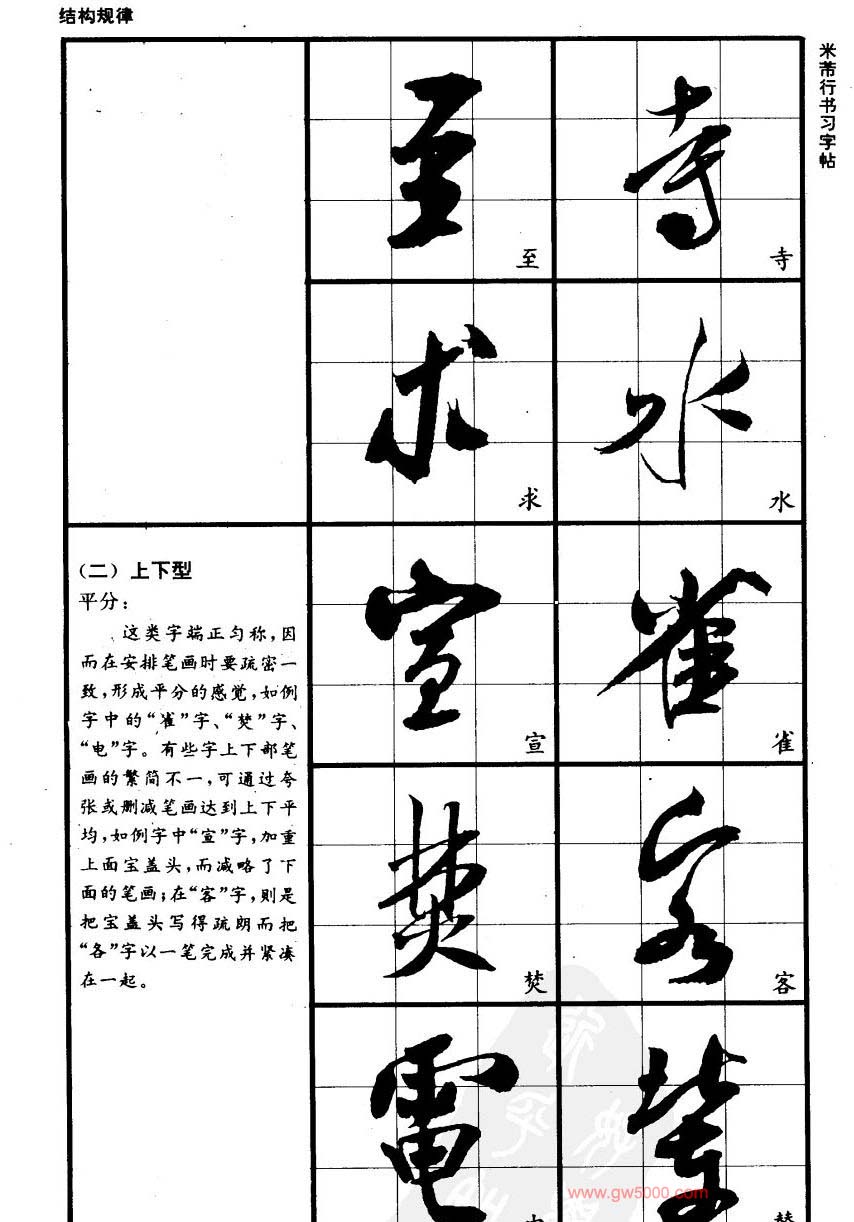 结构规律
米芾行书习字帖
至
寺
至
寺
求
水
求
水
(二)上下型
平分:
这类字端正匀称,因
而在安排笔画时要疏密一
致,形成平分的感觉,如例
字中的“雀”字、“焚”字、
“电”字。有些字上下部笔
画的繁简不一,可通过夸
张或删减笔画达到上下平
均,如例字中“宣”字,加重
上面宝盖头,而减略了下
面的笔画;在“客”字,则是
把宝盖头写得疏朗而把
“各”字以一笔完成并紧凑
在一起。
宣
雀
宣
雀
焚
客
焚
客
電
www.gw5000.com